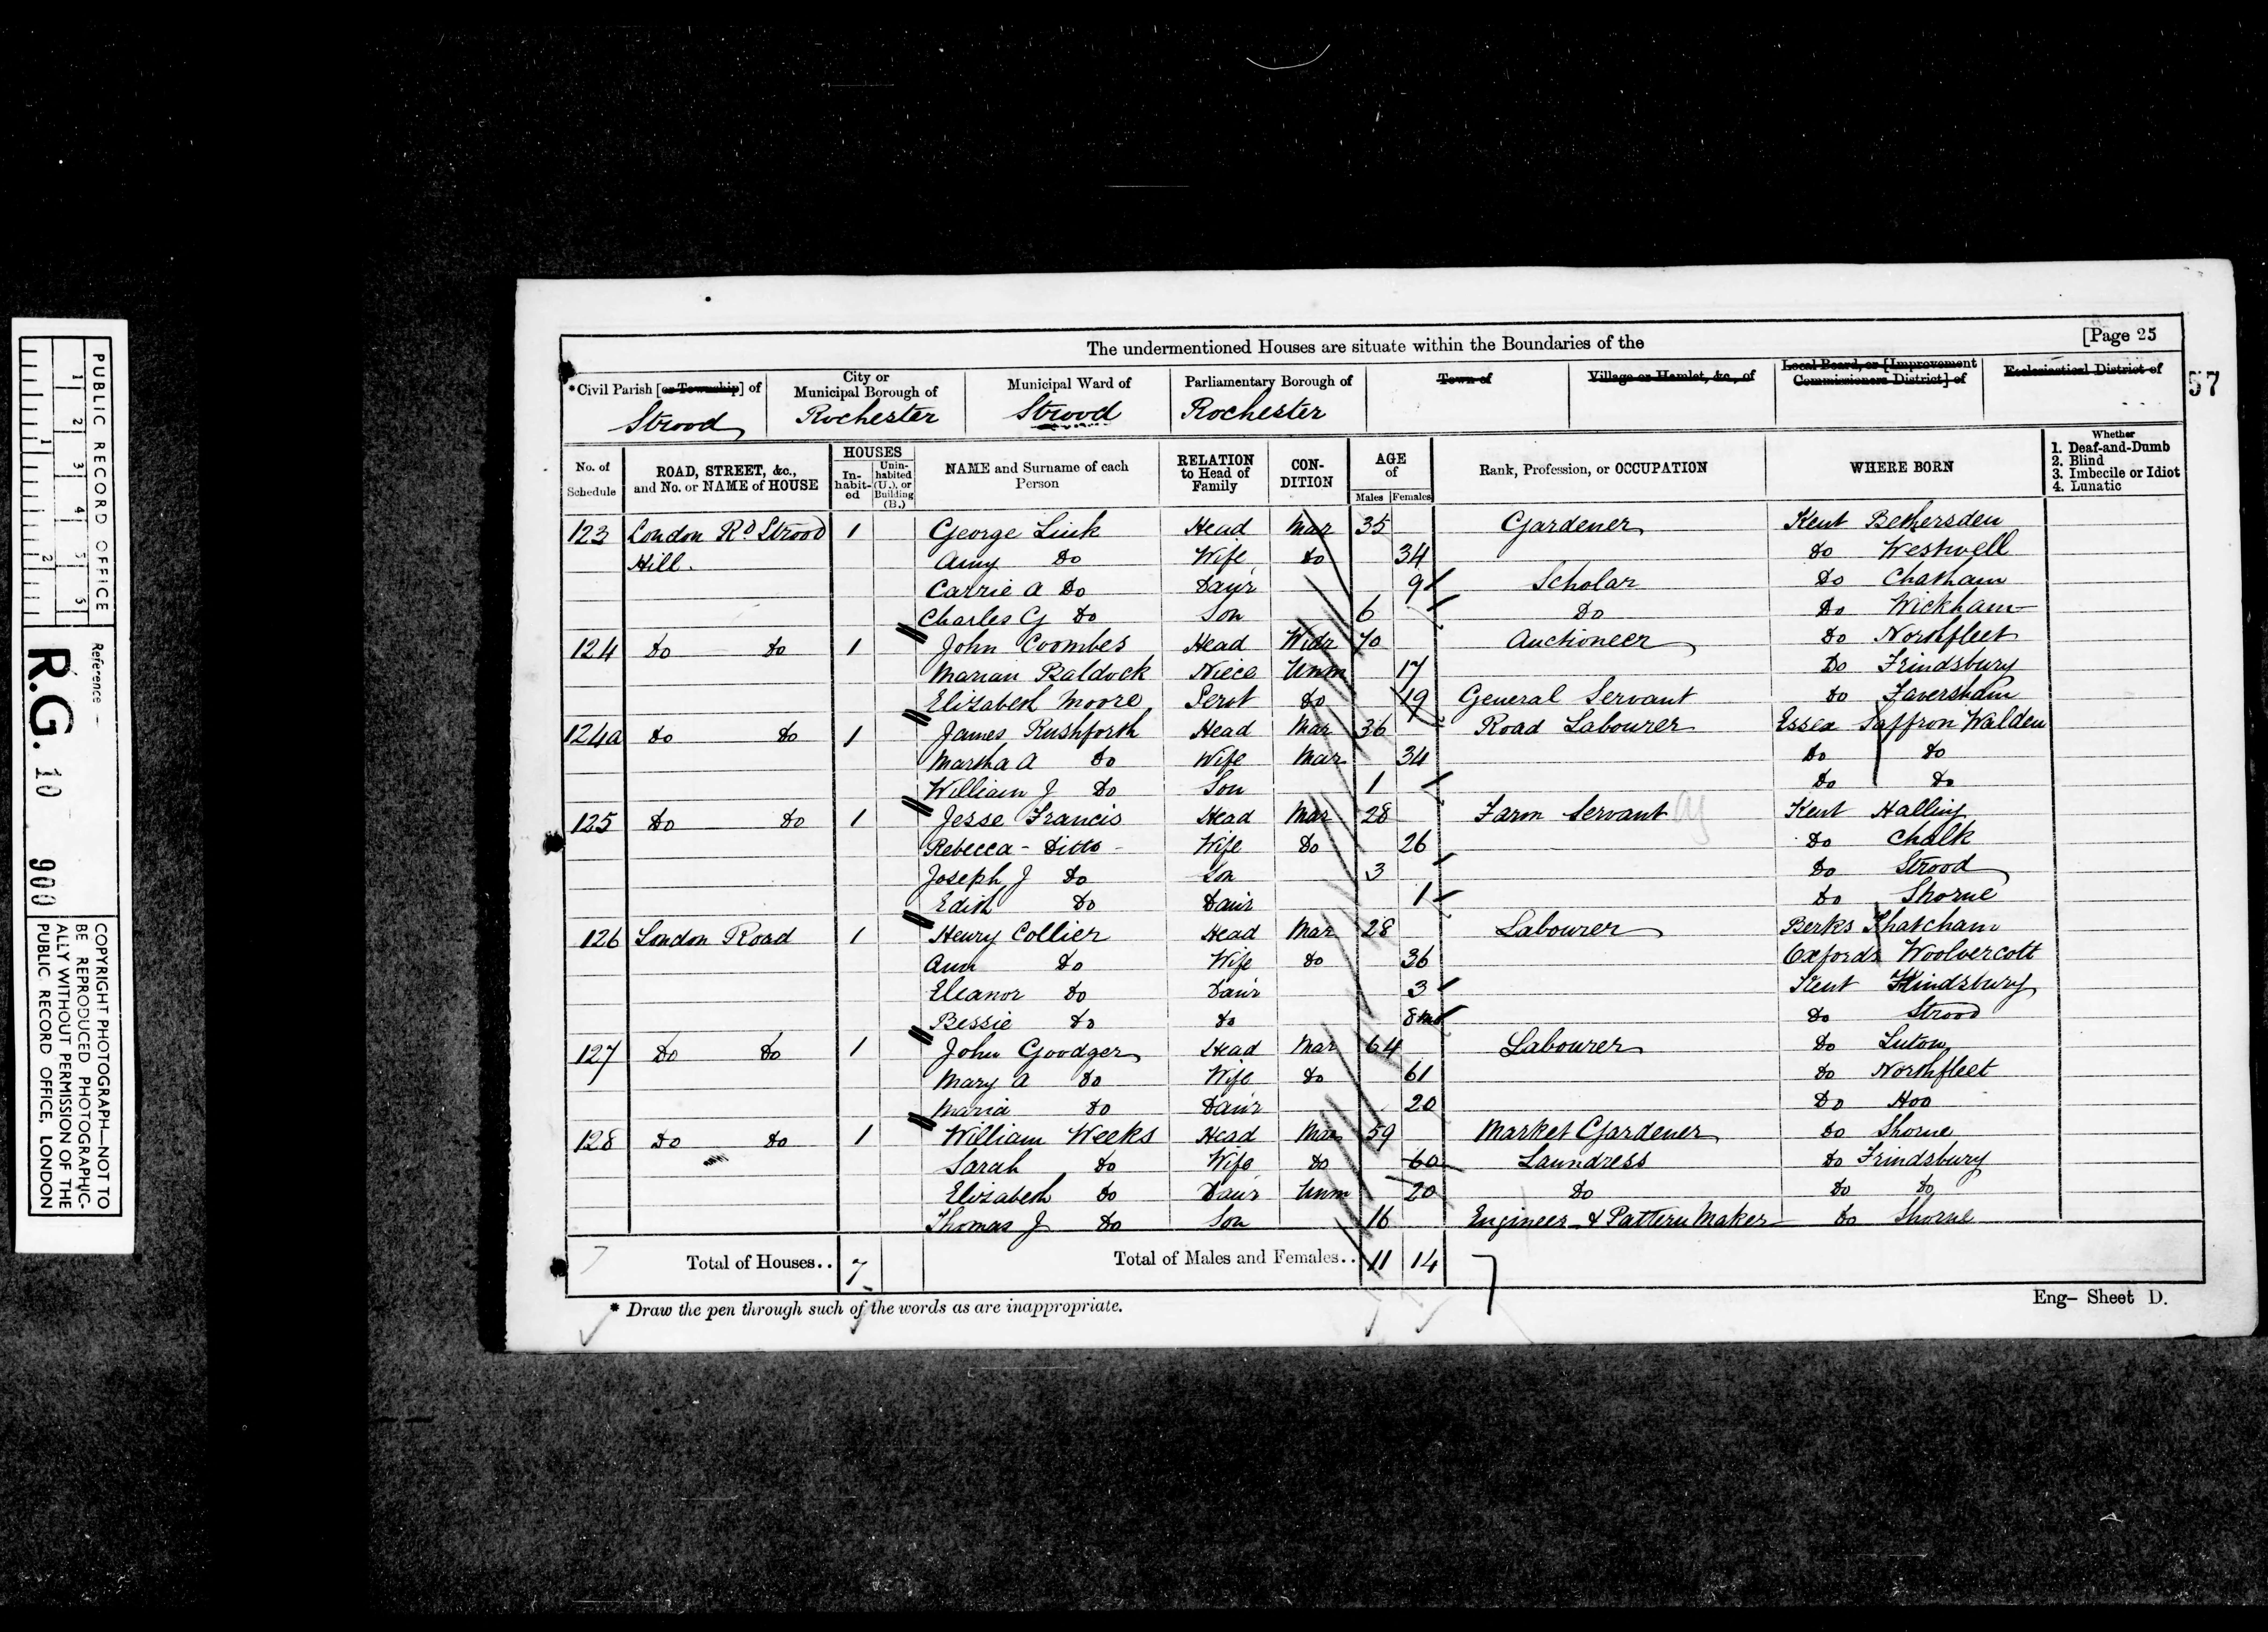 PUBLIC RECORD OFFICE
1 2 3 4 5
1 2
Reference –
R.G. 10 900
COPYRIGHT PHOTOGRAPH—NOT TO
BE REPRODUCED PHOTOGRAPHIC-
ALLY WITHOUT PERMISSION OF THE
PUBLIC RECORD OFFICE, LONDON
The undermentioned Houses are situate within the Boundaries of the [Page 25
57
*Civil Parish [or Township] of Strood
City or Municipal Borough of Rochester
Municipal Ward of Strood
Parliamentary Borough of Rochester
Town of
Village or Hamlet, &c., of
Local Board, or [Improvement Commissioners District] of
Ecclesiastical District of
No. of Schedule
ROAD, STREET, &c., and No. or NAME of HOUSE
HOUSES
In-habit-ed
Unin-habited (U.), or Building (B.)
NAME and Surname of each Person
RELATION to Head of Family
CON-DITION
AGE of
Males Females
Rank, Profession, or OCCUPATION
WHERE BORN
Whether
1. Deaf-and-Dumb
2. Blind
3. Imbecile or Idiot
4. Lunatic
123 London Rd Strood 1 George Link Head Mar 35 Gardener Kent Bethersden
Hill. Amy Do Wife Do 34 Do Westwell
Carrie A Do Daur 9 Scholar Do Chatham
Charles G Do Son 6 Do Do Wickham
124 Do Do 1 John Coombes Head Widr 70 Auctioneer Do Northfleet
Marian Baldock Niece Unm 17 Do Frindsbury
Elizabeth Moore Servt Do 19 General Servant Do Faversham
124a Do Do 1 James Rushforth Head Mar 36 Road Labourer Essex Saffron Walden
Martha A Do Wife Mar 34 Do Do
William J Do Son 1 Do Do
125 Do Do 1 Jesse Francis Head Mar 28 Farm Servant Kent Halling
Rebecca - Ditto - Wife Do 26 Do Chalk
Joseph J Do Son 3 Do Strood
Edith Do Daur 1 Do Shorne
126 London Road 1 Henry Collier Head Mar 28 Labourer Berks Thatcham
Ann Do Wife Do 36 Oxfords Woolvercott
Eleanor Do Daur 3 Kent Frindsbury
Bessie Do Do 8mo Do Strood
127 Do Do 1 John Goodger Head Mar 64 Labourer Do Luton
Mary A Do Wife Do 61 Do Northfleet
Maria Do Daur 20 Do Hoo
128 Do Do 1 William Weeks Head Mar 59 Market Gardener Do Shorne
Sarah Do Wife Do 60 Laundress Do Frindsbury
Elizabeth Do Daur Unm 20 Do Do Do
Thomas J Do Son 16 Engineer & Pattern Maker Do Shorne
Total of Houses.. 7 Total of Males and Females.. 11 14
* Draw the pen through such of the words as are inappropriate.
Eng– Sheet D.